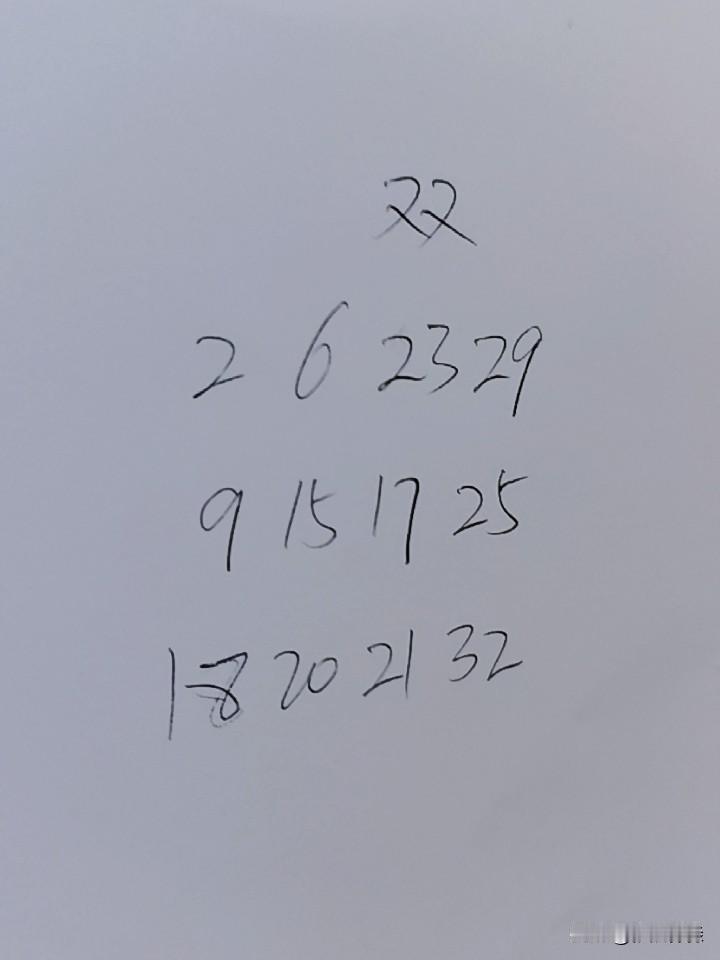 双
2 6 23 29
9 15 17 25
18 20 21 32